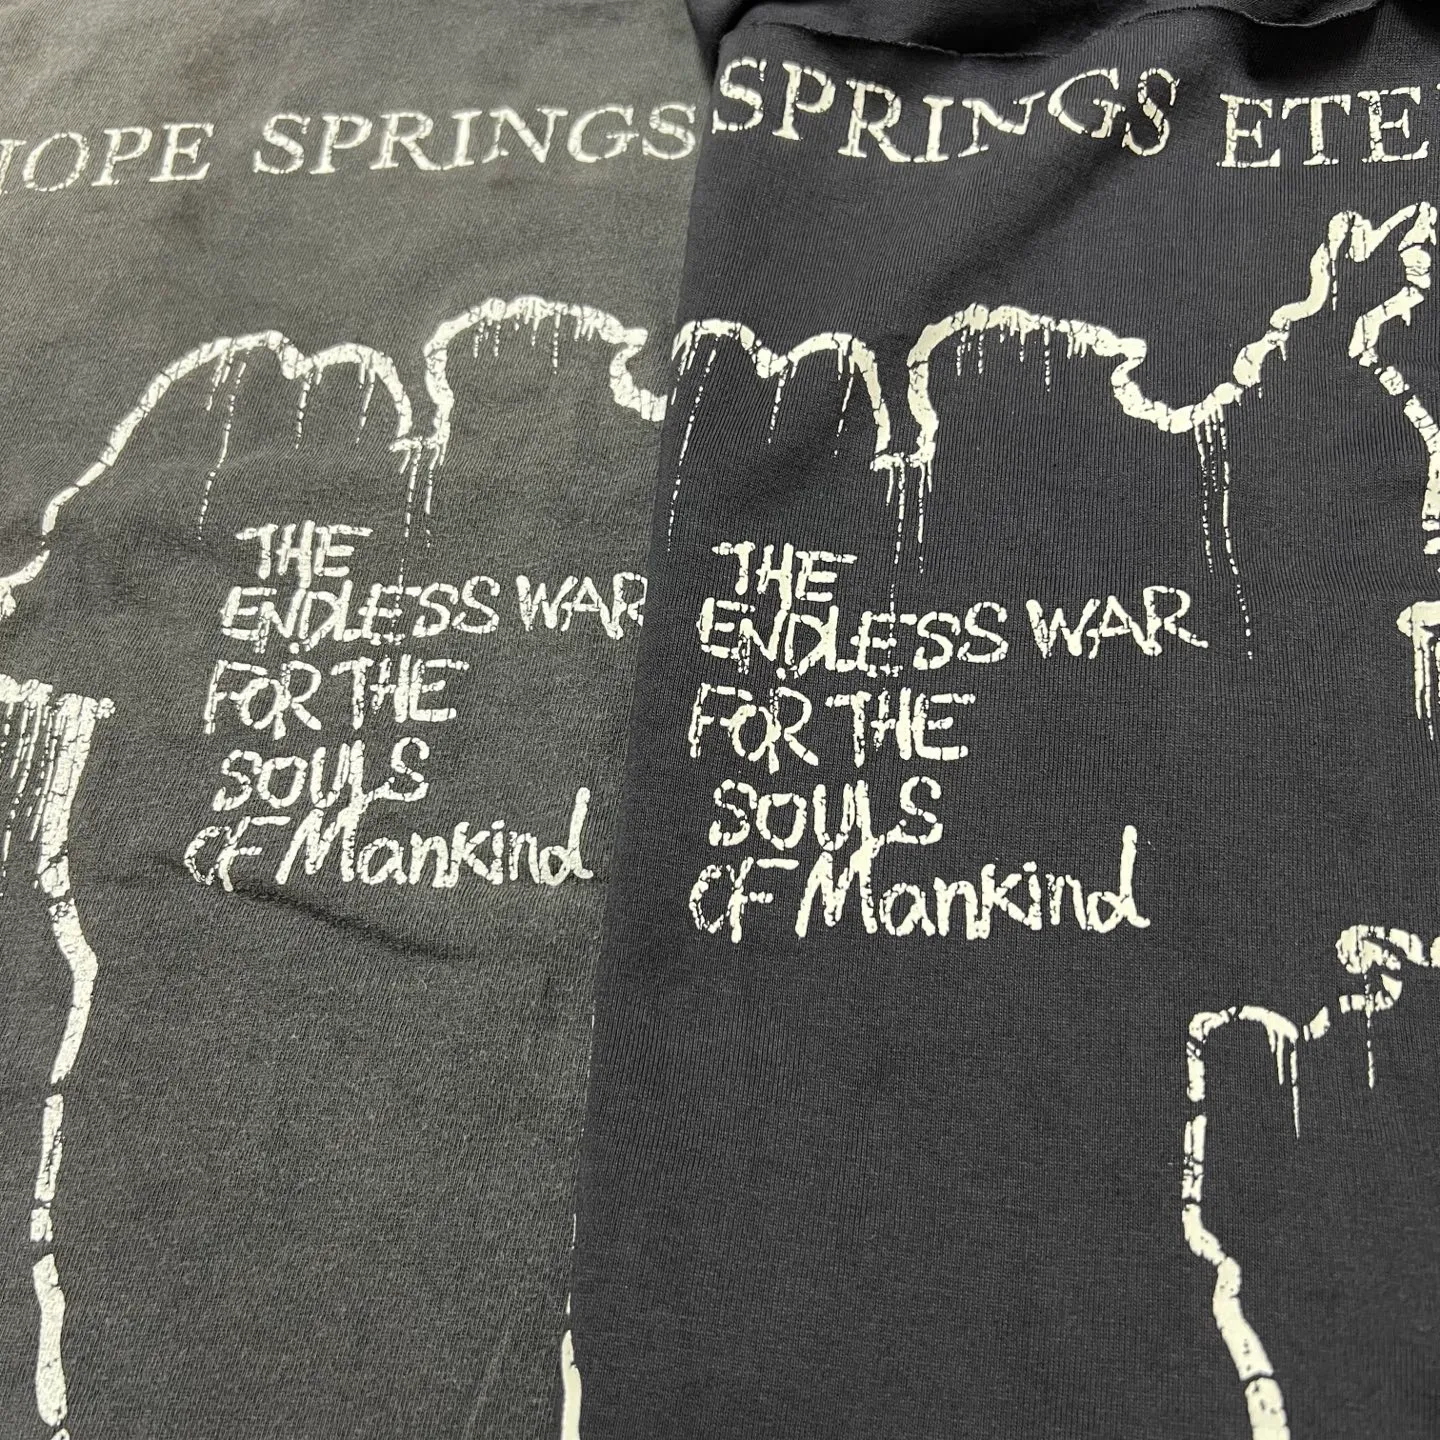 HOPE SPRINGS
THE
ENDLESS WAR
FOR THE
SOULS
OF Mankind
SPRINGS ETE
THE
ENDLESS WAR
FOR THE
SOULS
OF Mankind